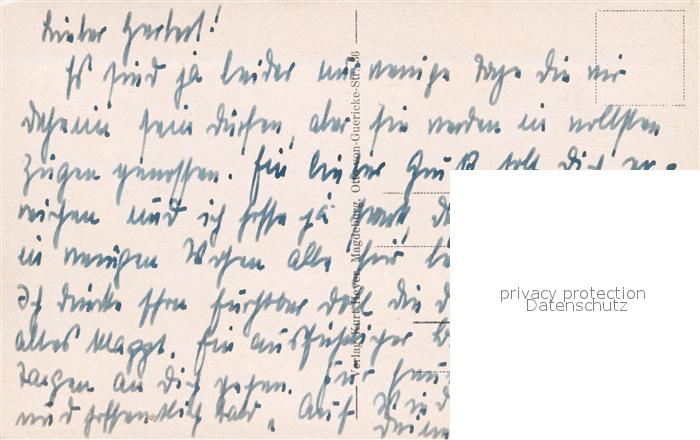 Lieber Herbert!
Es sind ja leider nur wenige Tage die wir
daheim sein dürfen, aber sie werden in vollsten
Zügen genossen. Ein lieber Gruß soll Dich er-
reichen und ich hoffe ja stark, d
in wenigen Wochen alle hier
Ich drücke schon furchtbar doll die D
alles klappt. Ein ausführlicher B
Tagen an Dich gehen. Für heut
und hoffentlich bald. Auf Wied
Deine
Verlag Kurt Heyer, Magdeburg, Otto-von-Guericke-Str.
privacy protection
Datenschutz